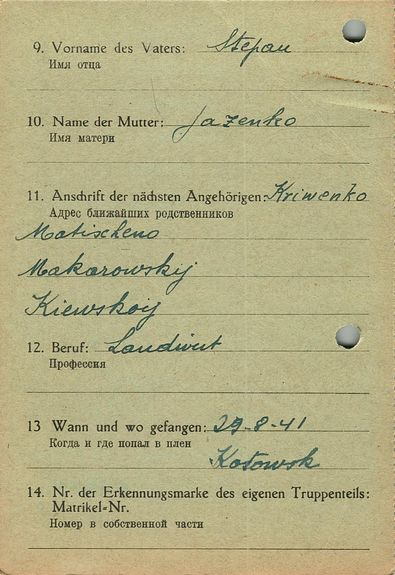 9. Vorname des Vaters: Stepan
Имя отца
10. Name der Mutter: Jazenko
Имя матери
11. Anschrift der nächsten Angehörigen: Kriwenko
Адрес ближайших родственников
Matischeno
Makarowskij
Kiewskoij
12. Beruf: Landwirt
Профессия
13 Wann und wo gefangen: 29-8-41
Когда и где попал в плен
Kotowsk
14. Nr. der Erkennungsmarke des eigenen Truppenteils:
Matrikel-Nr.
Номер в собственной части